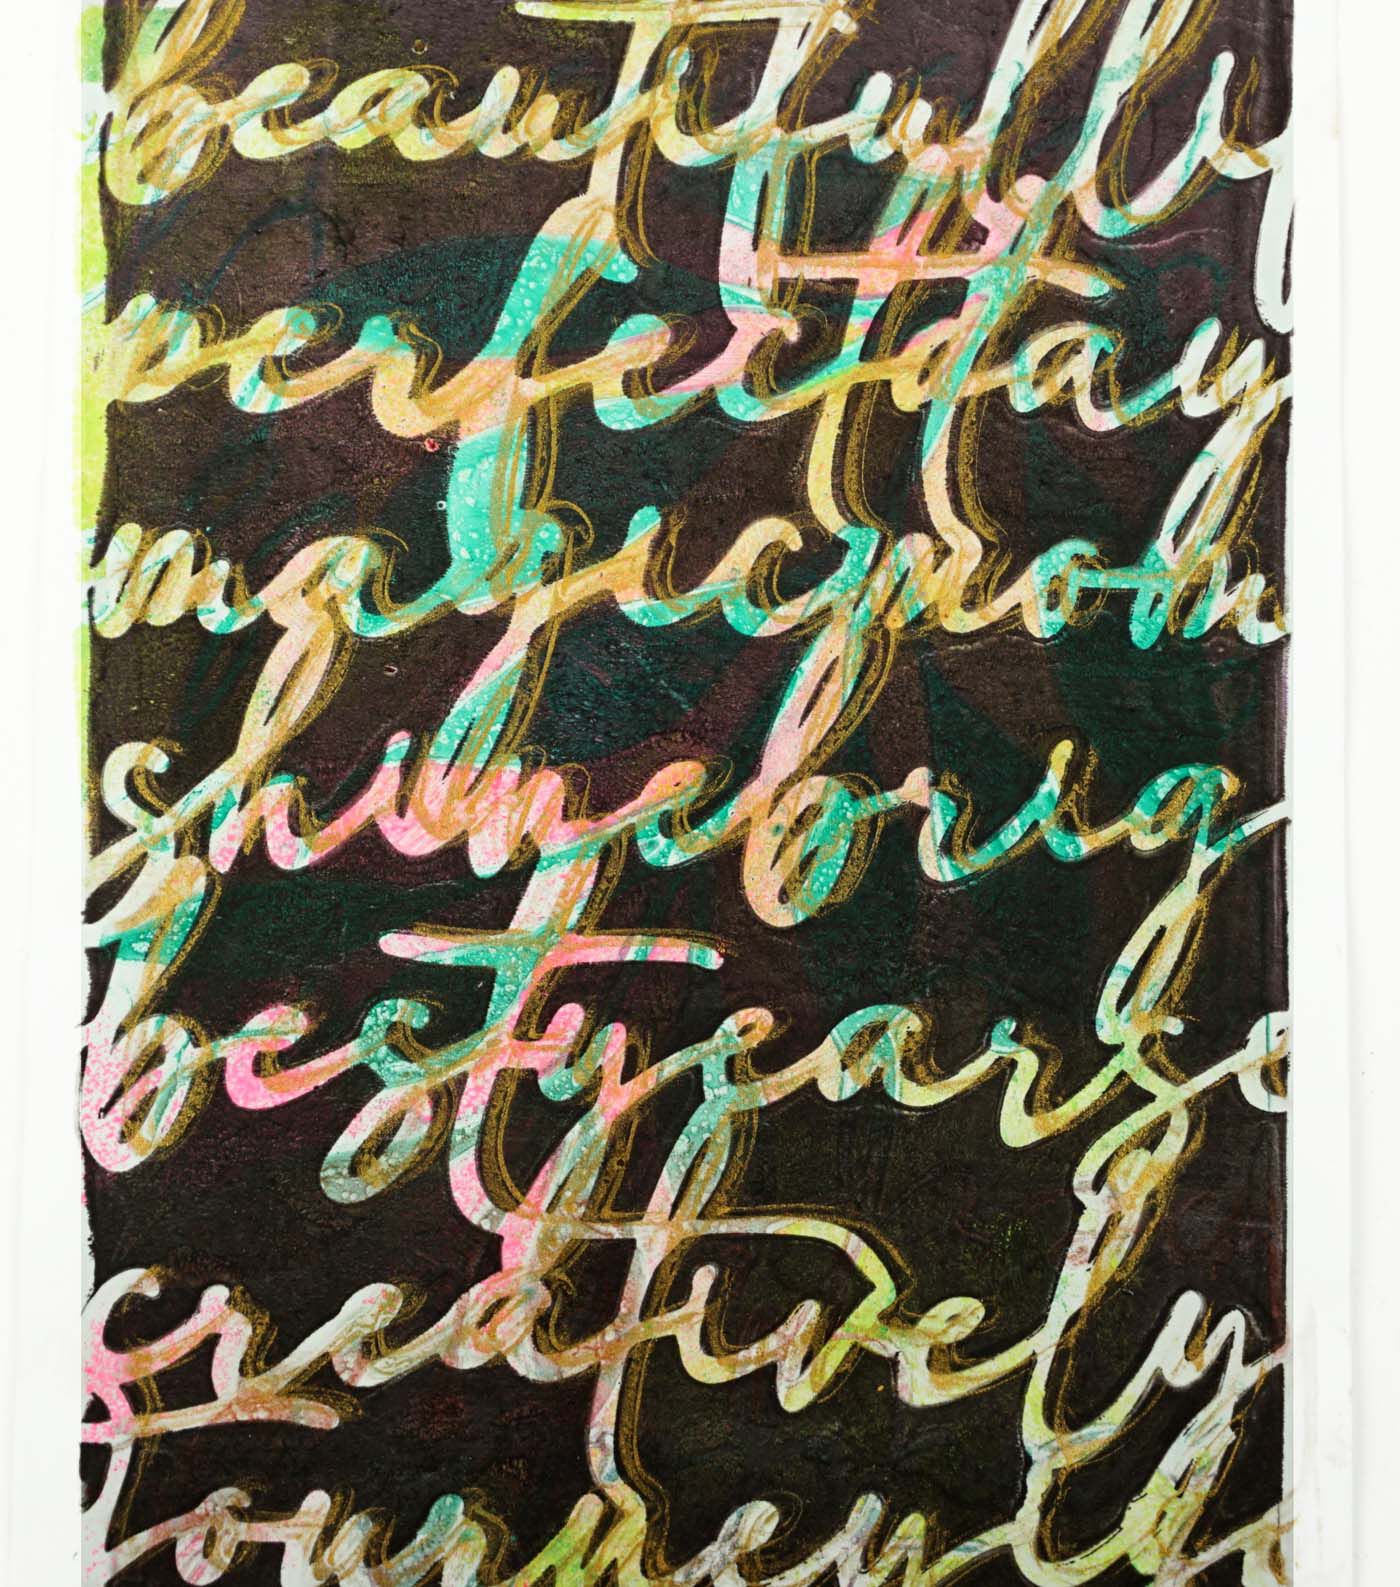 beautifully
perfect day
magic mom
shine brig
best years
creatively
journey